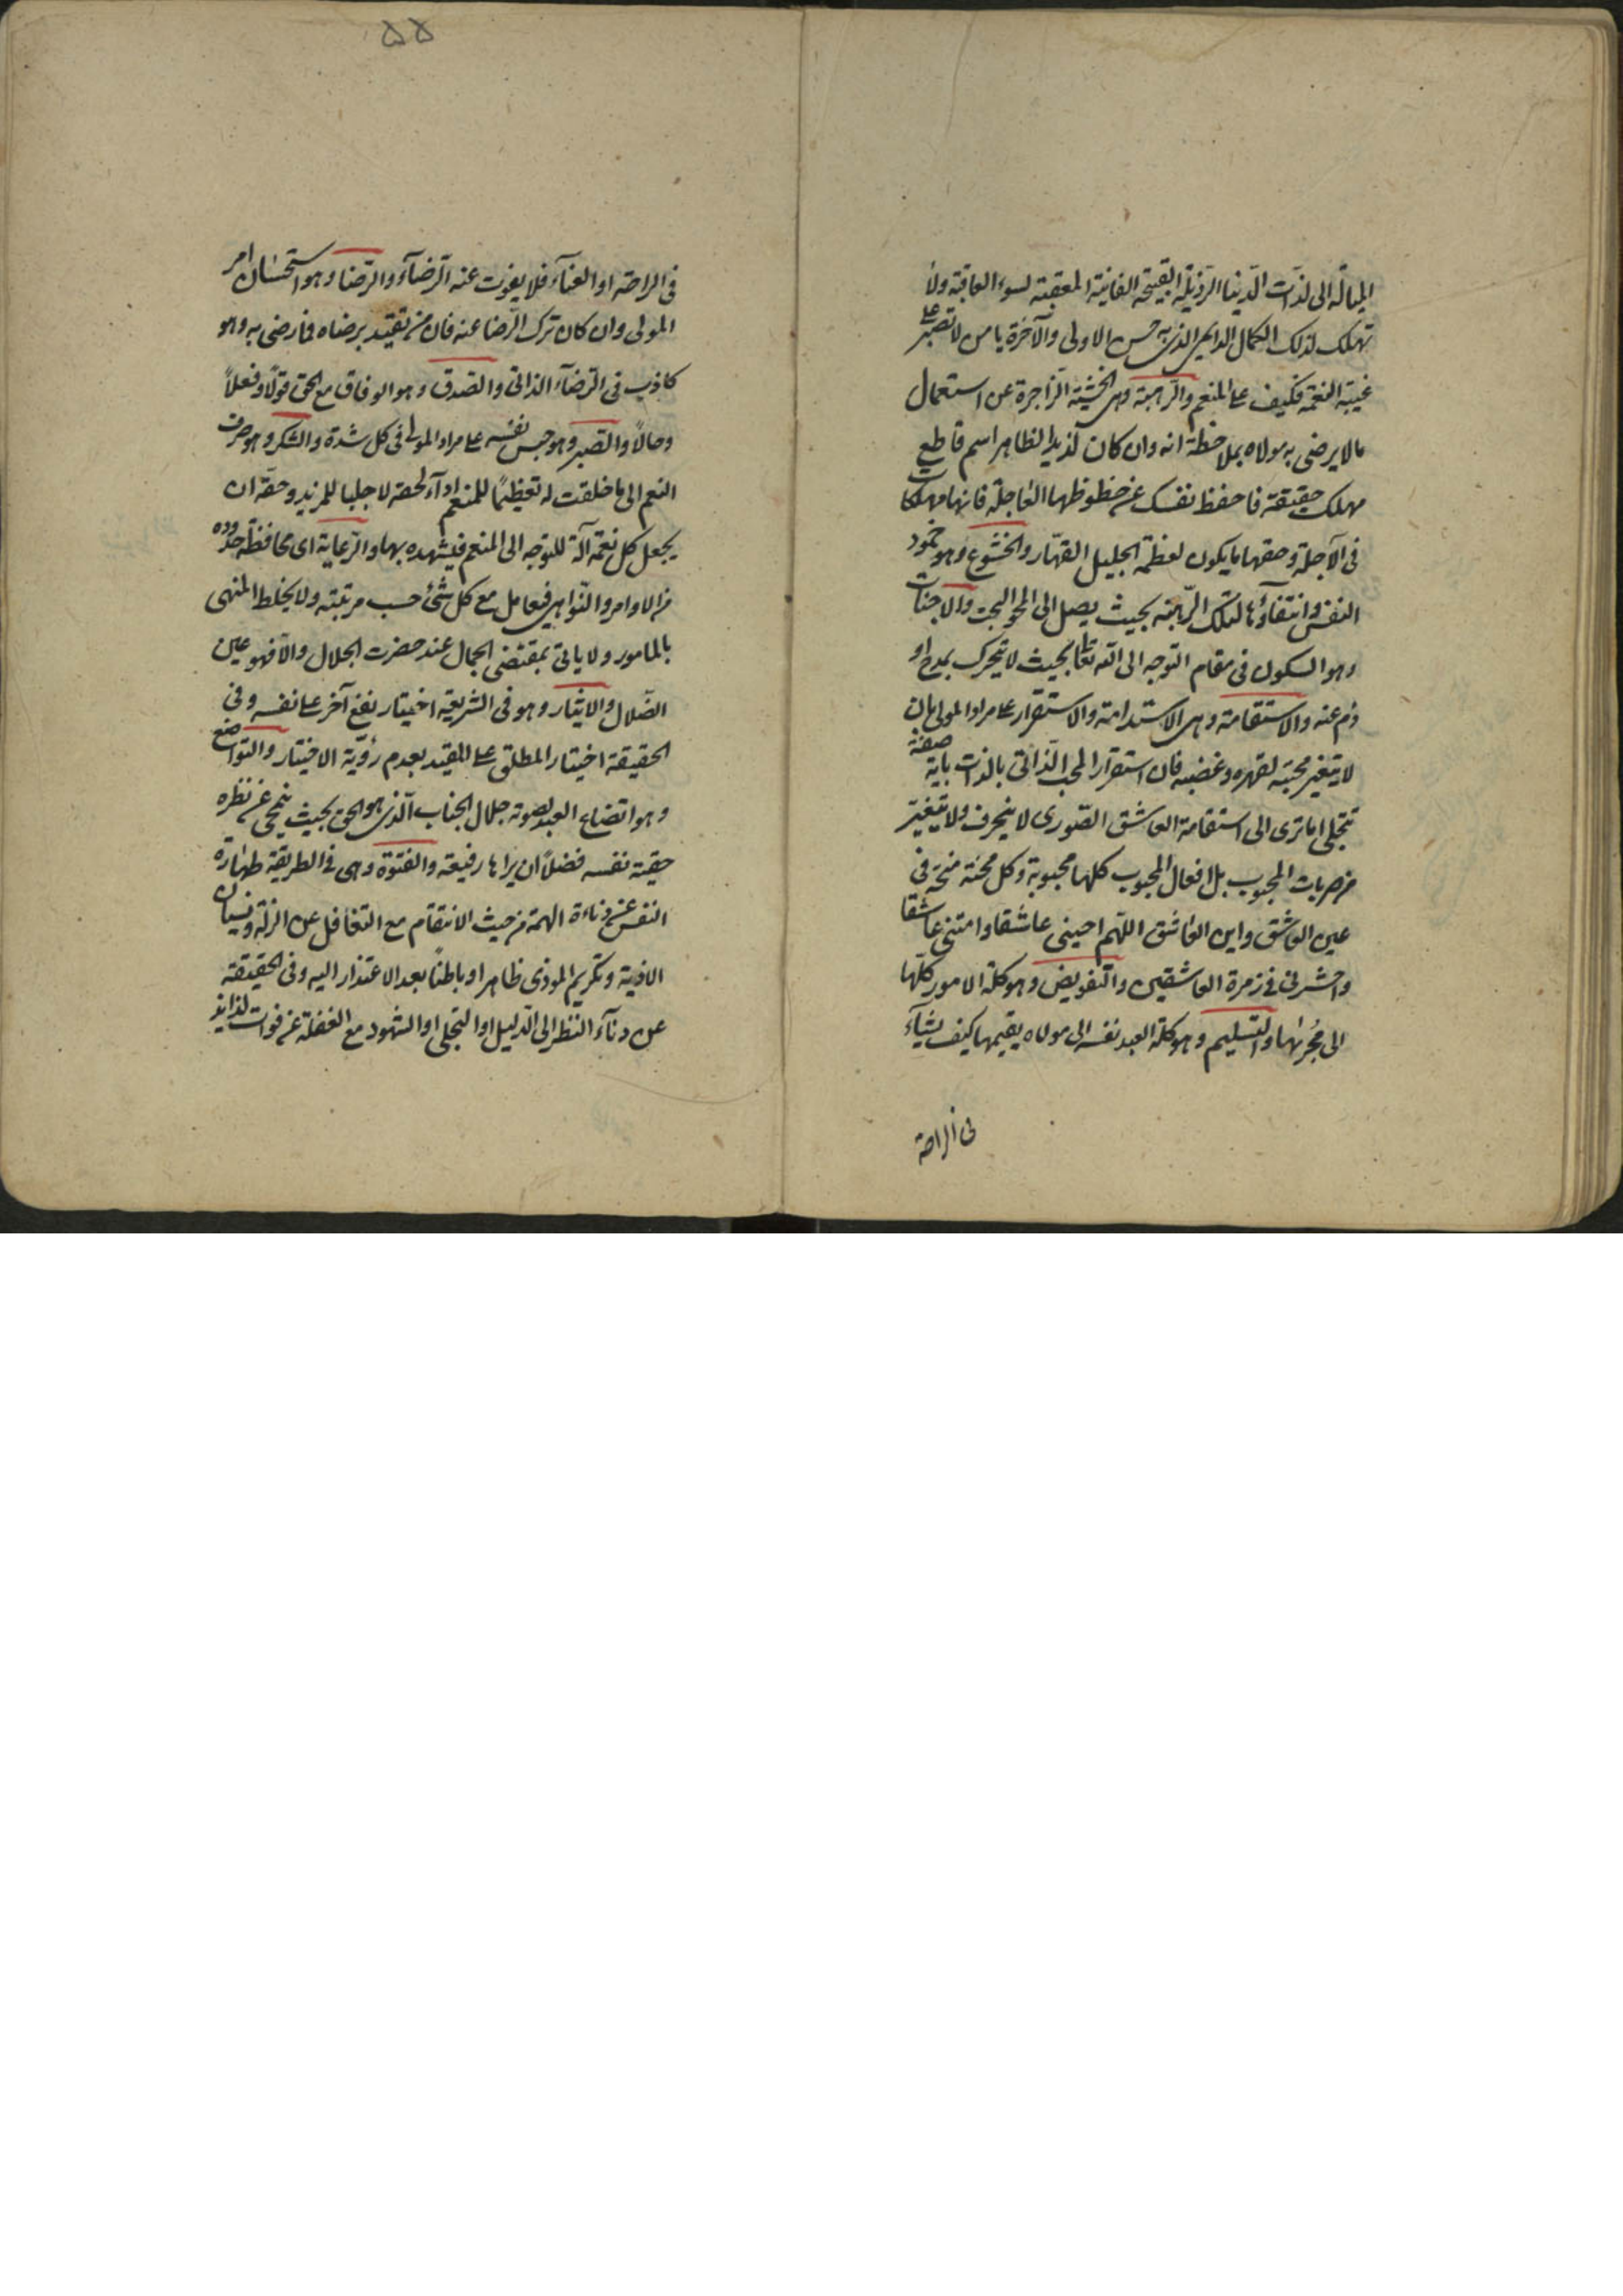 الميالة الى لذات الدنيا الرذيلة القبيحة الفانية المعقبة لسوء العاقبة ولا
تهلك لذلك الكمال الدايمى الذى به حسن الاولى والآخرة يا من لا تصبر على
غيبة النعمة فكيف على المنعم والرهبة وهى الخشية الزاجرة عن استعمال
ما لا يرضى به مولاه بملاحظة انه وان كان لذيذ الظاهر اسم قاطع
مهلك حقيقة فاحفظ نفسك عن حظوظها العاجلة فانها مهلكات
فى الآجلة وحقها ما يكون لعظمة الجليل القهار والخشوع وهو خمود
النفس وانتفاؤها لتلك الرهبة بحيث يصل الى المحو البحت والاخبات
وهو السكون فى مقام التوجه الى الله تعالى بحيث لا يتحرك بمدح او
ذم عنه والاستقامة وهى الاستدامة والاستقرار على مراد المولى بان
لا يتغير محبته لقهره وغضبه فان استقرار المحب الذاتى بالذات باية صفة
تتجلى اما ترى الى استقامة العاشق الصورى لا ينحرف ولا يتغير
من ضربات المحبوب بل افعال المحبوب كلها محبوبة وكل محنة منحة فى
عين العاشق واين العاشق اللهم احينى عاشقا وامتنى عاشقا
واحشرنى فى زمرة العاشقين والتفويض وهو كلة الامور كلها
الى مجريها والتسليم وهو كلة العبد نفسه الى مولاه يقيمها كيف يشآء
فى الراحة
٥٥
فى الراحة او العنآء فلا يفوت عنه الرضآء والرضا وهو استحسان امر
المولى وان كان ترك الرضا عنه فان من تقيد برضاه فما رضى به وهو
كاذب فى الرضآء الذاتى والصدق وهو الوفاق مع الحق قولاً وفعلاً
وحالاً والصبر وهو حبس نفسه على مراد المولى فى كل شدة والشكر وهو صرف
النعم الى ما خلقت له تعظيمًا للمنعم ادآء لحقه لا جلبا للمزيد وحقه ان
يجعل كل نعمة آلة للتوجه الى المنعم فيشهده بها والرعاية اى محافظة حدوده
من الاوامر والنواهى فيعامل مع كل شئ حسب مرتبته ولا يخلط المنهى
بالمامور ولا ياتى بمقتضى الجمال عند حضرت الجلال والا فهو عين
الضلال والايثار وهو فى الشريعة اختيار نفع آخر على نفسه وفى
الحقيقة اختيار المطلق على المقيد بعدم رؤية الاختيار والتواضع
وهو اتضاع العبد لصوته جلال الجناب الذى هو الحق بحيث ينمحى عن نظره
حقية نفسه فضلاً ان يراها رفيعة والفتوة وهى فى الطريقة طهارة
النفس عن دناءة الهمة من حيث الانتقام مع التغافل عن الزلة ونسيان
الاذية وتكريم الموذى ظاهرا وباطناً بعد الاعتذار اليه وفى الحقيقة
عن دنآء النظر الى الدليل او التجلى او الشهود مع الغفلة عن فوات لذايذ